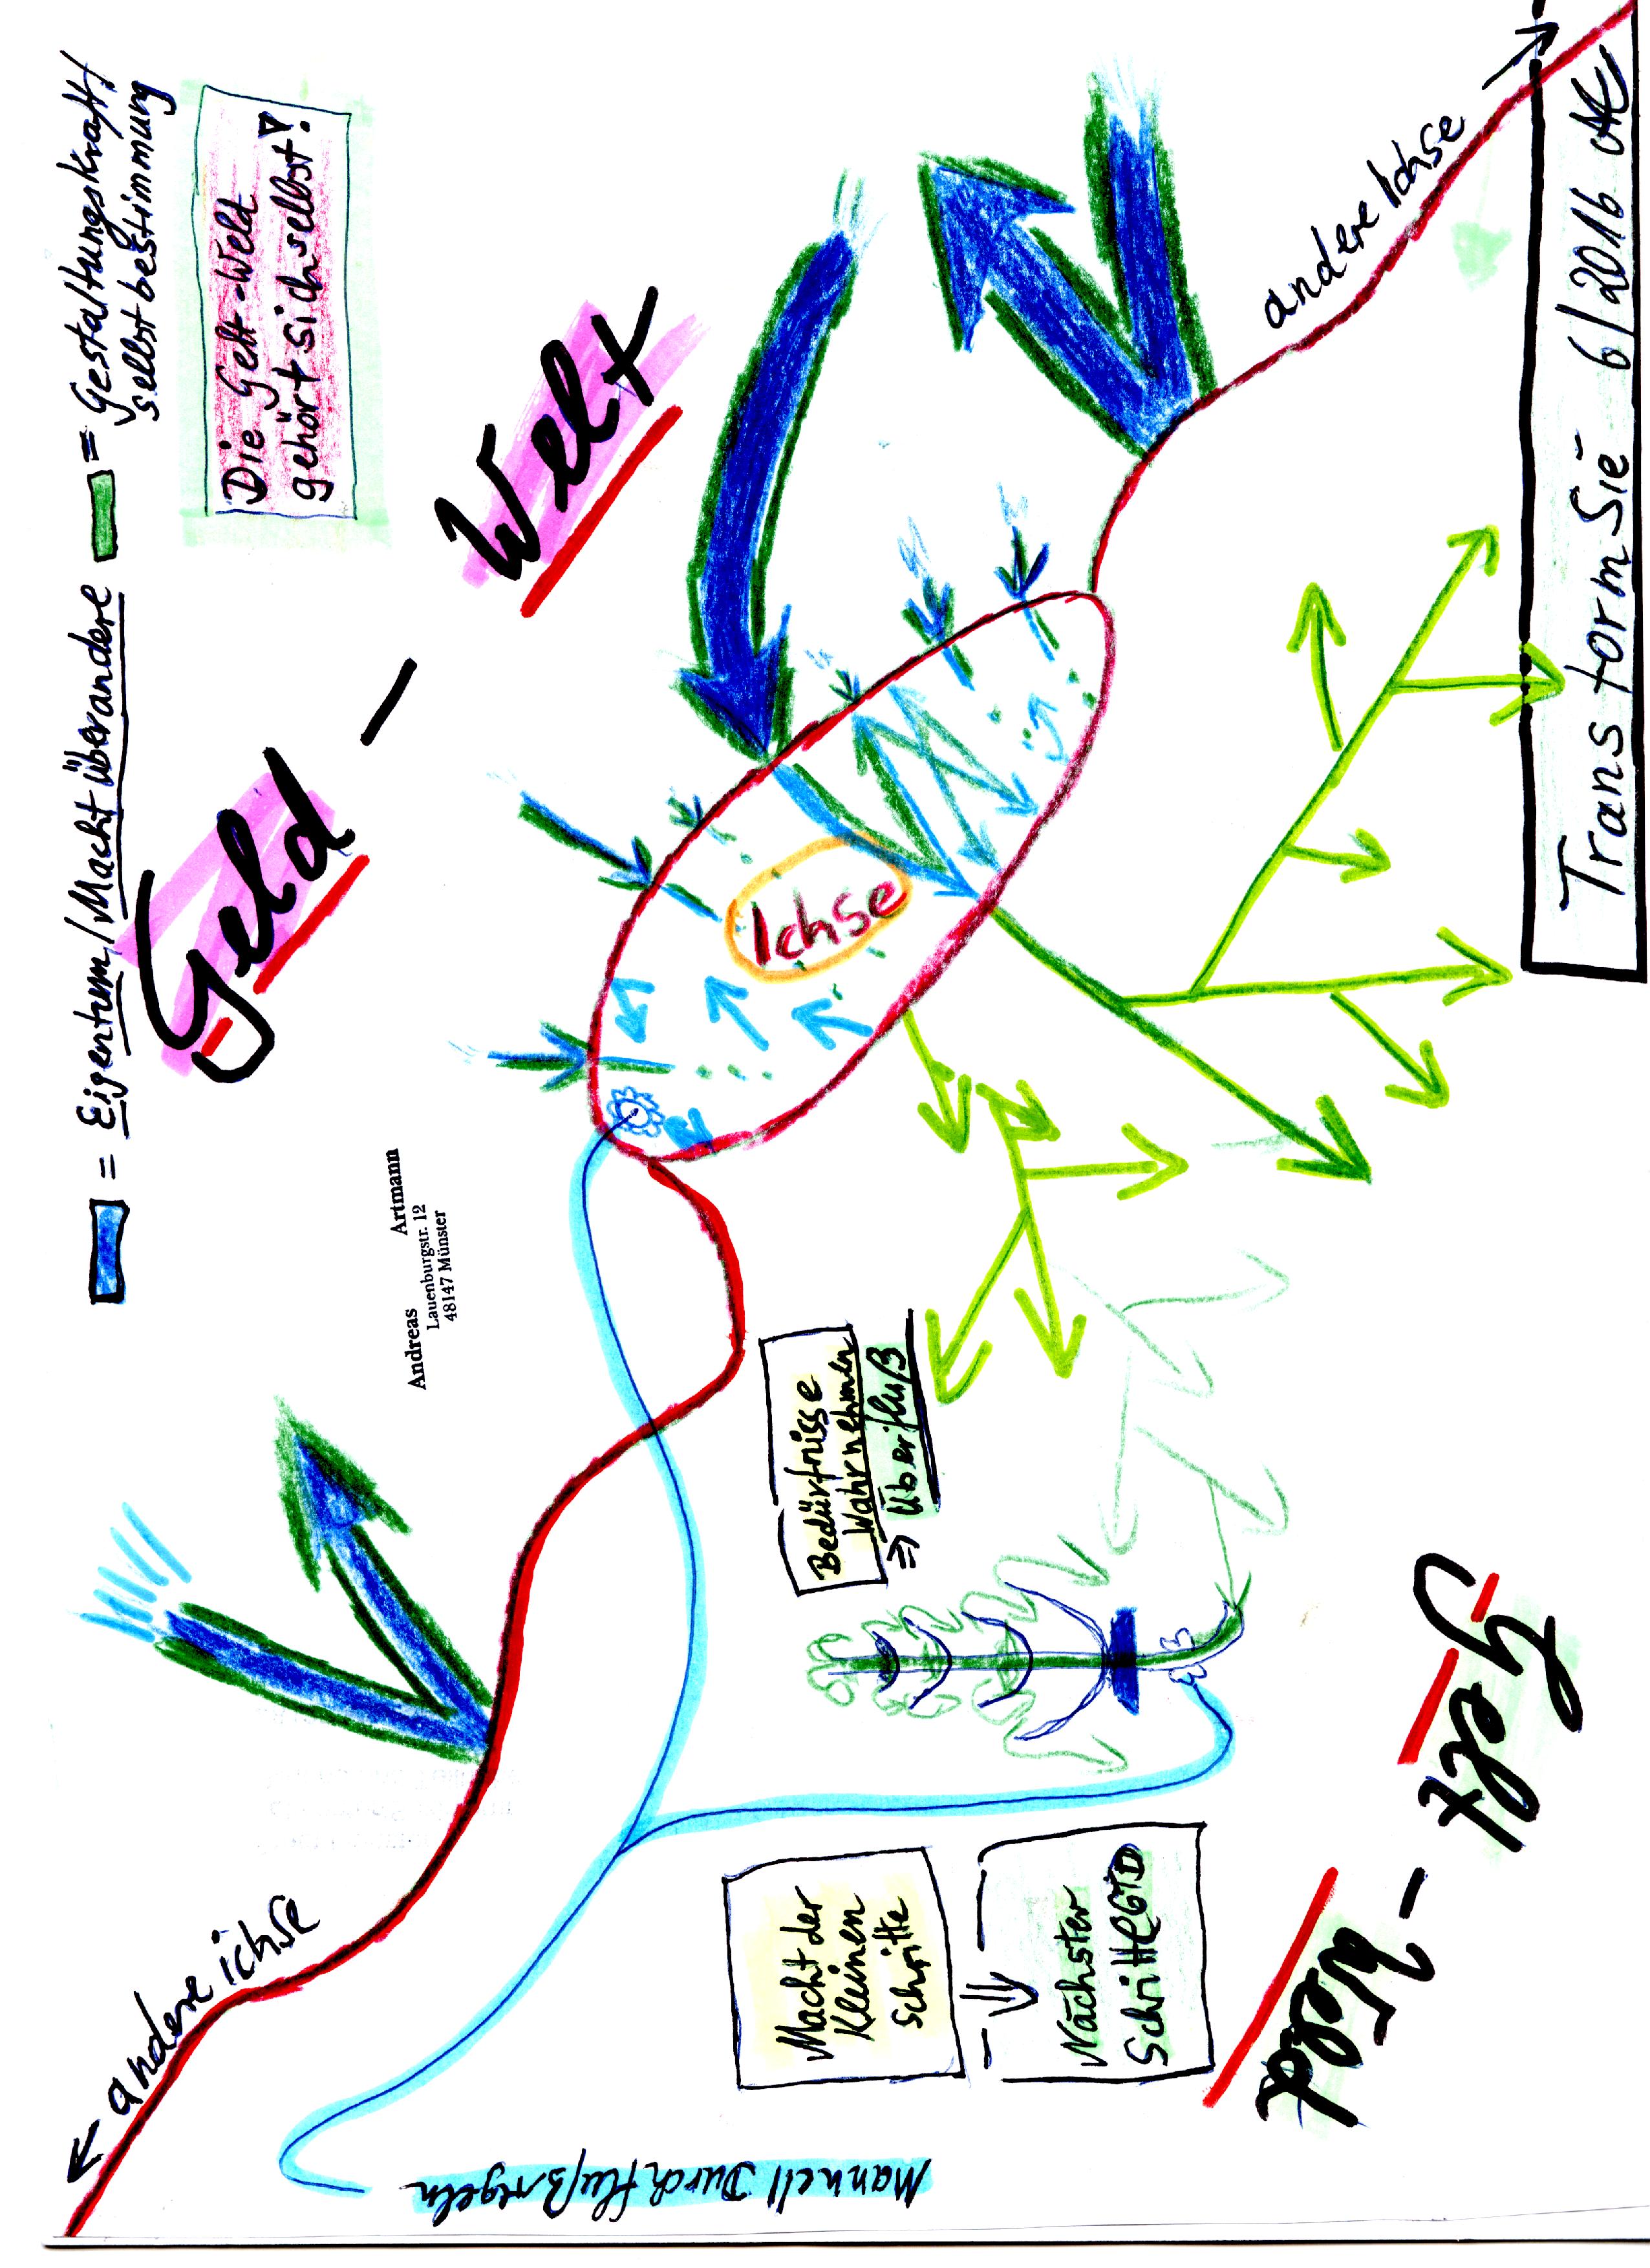 = Eigentum/Macht über andere = Gestaltungskraft/
selbstbestimmung
Die Gelt-Weld
gehört sich selbst!
Geld - Welt
andere Ichse
Andreas Artmann
Lauenburgstr. 12
48147 Münster
Ichse
andere ichse
Bedürfnisse
Wahrnehmen
⇒ Überfluß
Macht der
Kleinen
Schritte
⇒
Nächster
Schritt(GTD
Manuell Durchfluß regeln
Gelt - Weld
TransformSie 6/2016